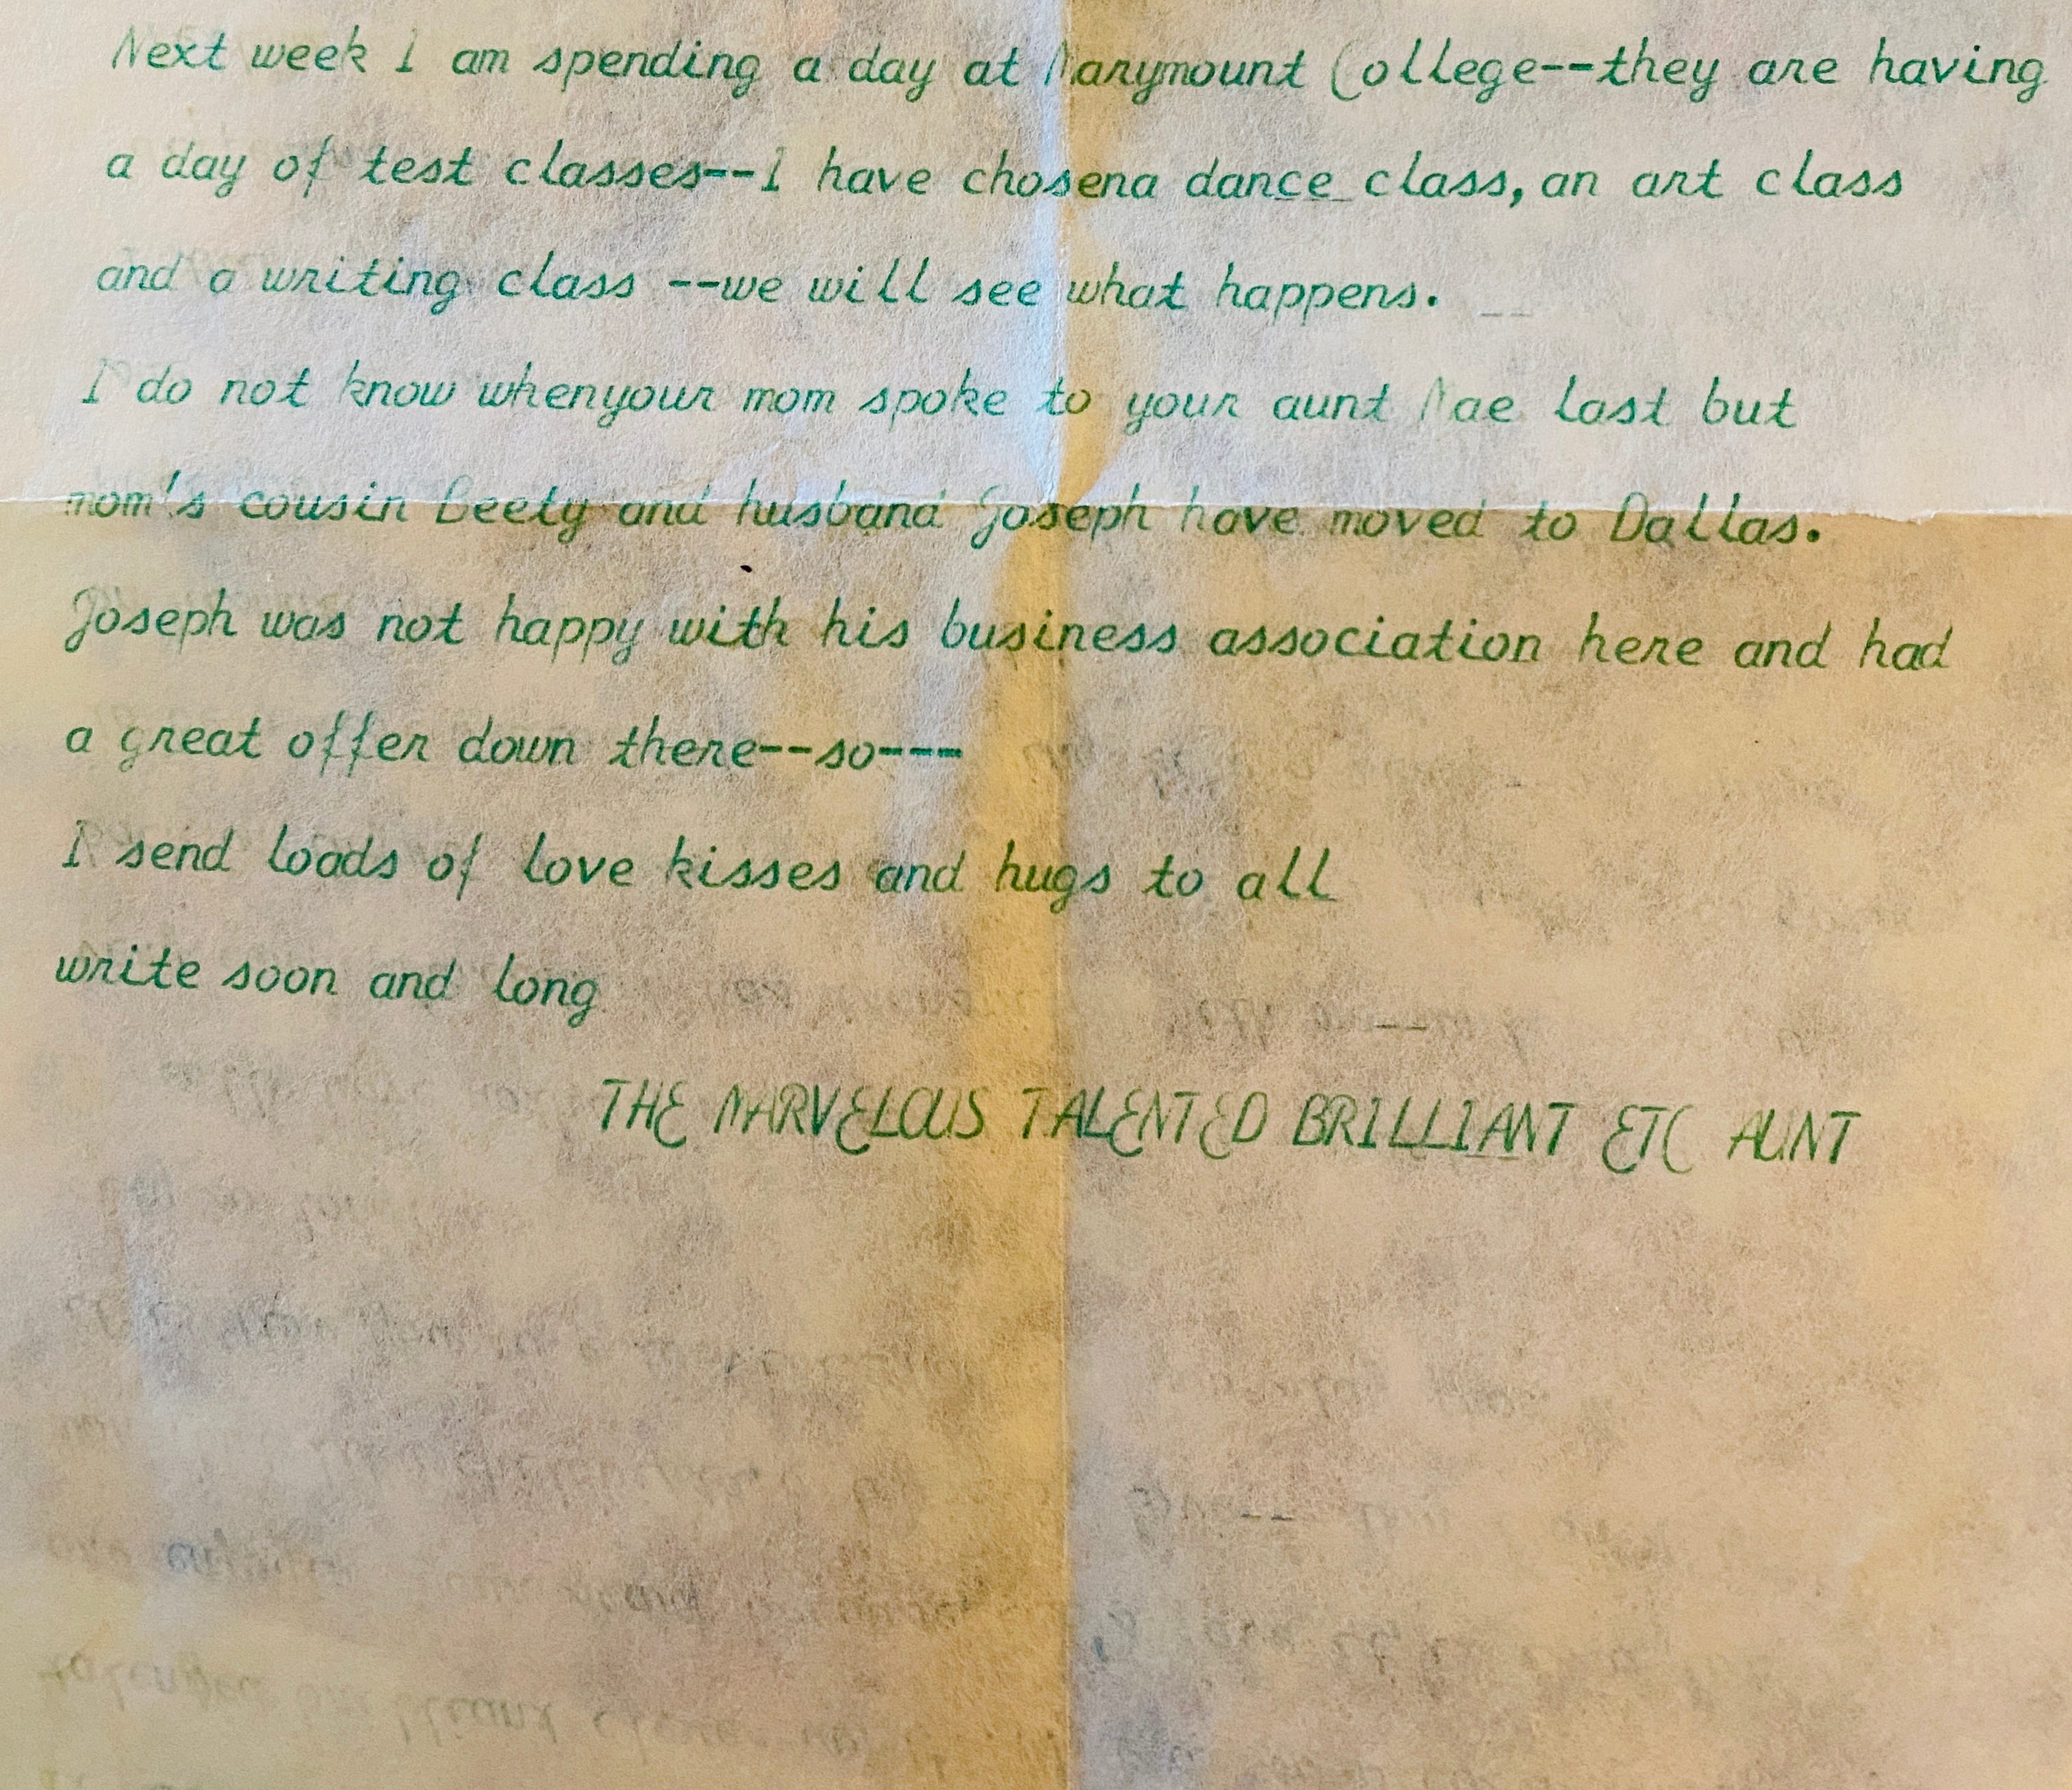 Next week I am spending a day at Marymount College--they are having
a day of test classes--I have chosena dance class, an art class
and a writing class --we will see what happens.
I do not know whenyour mom spoke to your aunt Mae last but
mom's cousin Beety and husband Joseph have moved to Dallas.
Joseph was not happy with his business association here and had
a great offer down there--so---
I send loads of love kisses and hugs to all
write soon and long
THE MARVELOUS TALENTED BRILLIANT ETC AUNT